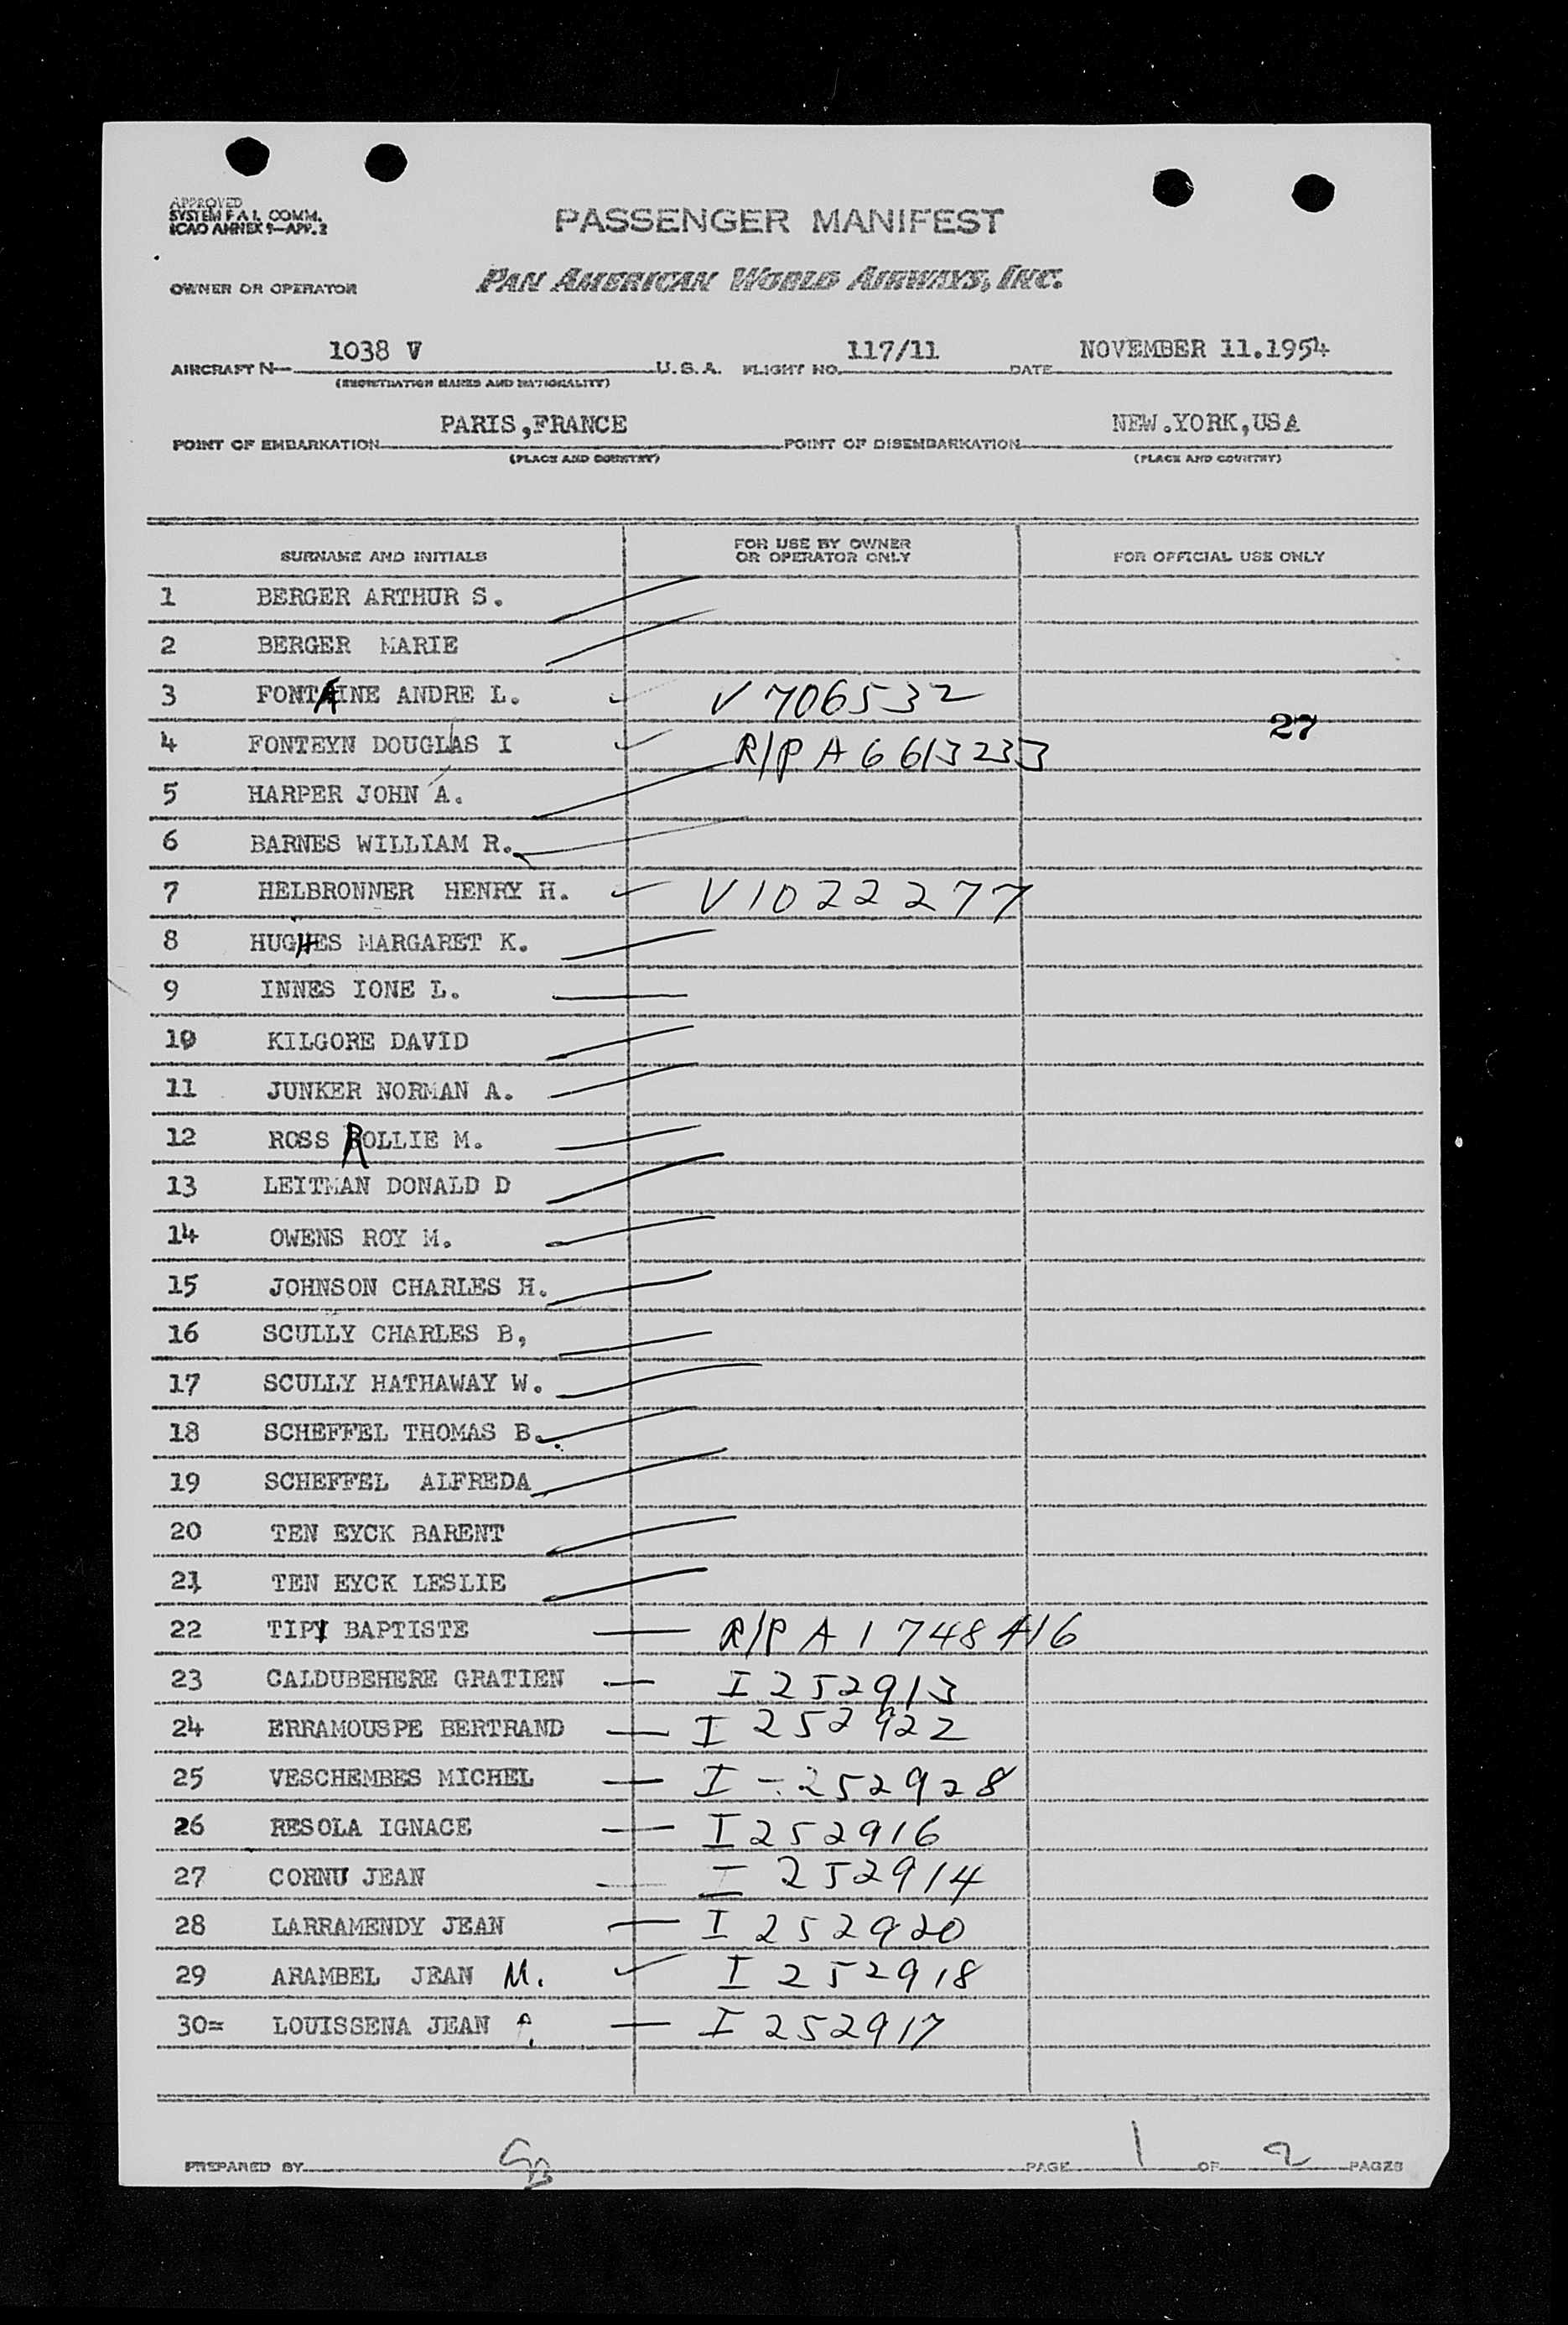 APPROVED
SYSTEM F.A.L. COMM.
ICAO ANNEX 9—APP. 2
PASSENGER MANIFEST
OWNER OR OPERATOR PAN AMERICAN WORLD AIRWAYS, INC.
AIRCRAFT N— 1038 V U.S.A. FLIGHT NO. 117/11 DATE NOVEMBER 11.1954
(REGISTRATION MARKS AND NATIONALITY)
POINT OF EMBARKATION PARIS,FRANCE POINT OF DISEMBARKATION NEW.YORK,USA
(PLACE AND COUNTRY) (PLACE AND COUNTRY)
SURNAME AND INITIALS FOR USE BY OWNER OR OPERATOR ONLY FOR OFFICIAL USE ONLY
1 BERGER ARTHUR S.
2 BERGER MARIE
3 FONTAINE ANDRE L. V 706532
27
4 FONTEYN DOUGLAS I R/P A 6 613233
5 HARPER JOHN A.
6 BARNES WILLIAM R.
7 HELBRONNER HENRY H. V1022277
8 HUGHES MARGARET K.
9 INNES IONE L.
10 KILGORE DAVID
11 JUNKER NORMAN A.
12 ROSS ROLLIE M.
13 LEITMAN DONALD D
14 OWENS ROY M.
15 JOHNSON CHARLES H.
16 SCULLY CHARLES B,
17 SCULLY HATHAWAY W.
18 SCHEFFEL THOMAS B.
19 SCHEFFEL ALFREDA
20 TEN EYCK BARENT
21 TEN EYCK LESLIE
22 TIPY BAPTISTE R/P A 1 748 416
23 CALDUBEHERE GRATIEN I 252913
24 ERRAMOUSPE BERTRAND I 252922
25 VESCHEMBES MICHEL I - 252928
26 RESOLA IGNACE I 252916
27 CORNU JEAN I 252914
28 LARRAMENDY JEAN I 252920
29 ARAMBEL JEAN M. I 252918
30= LOUISSENA JEAN P. I 252917
PREPARED BY PAGE 1 OF 2 PAGES